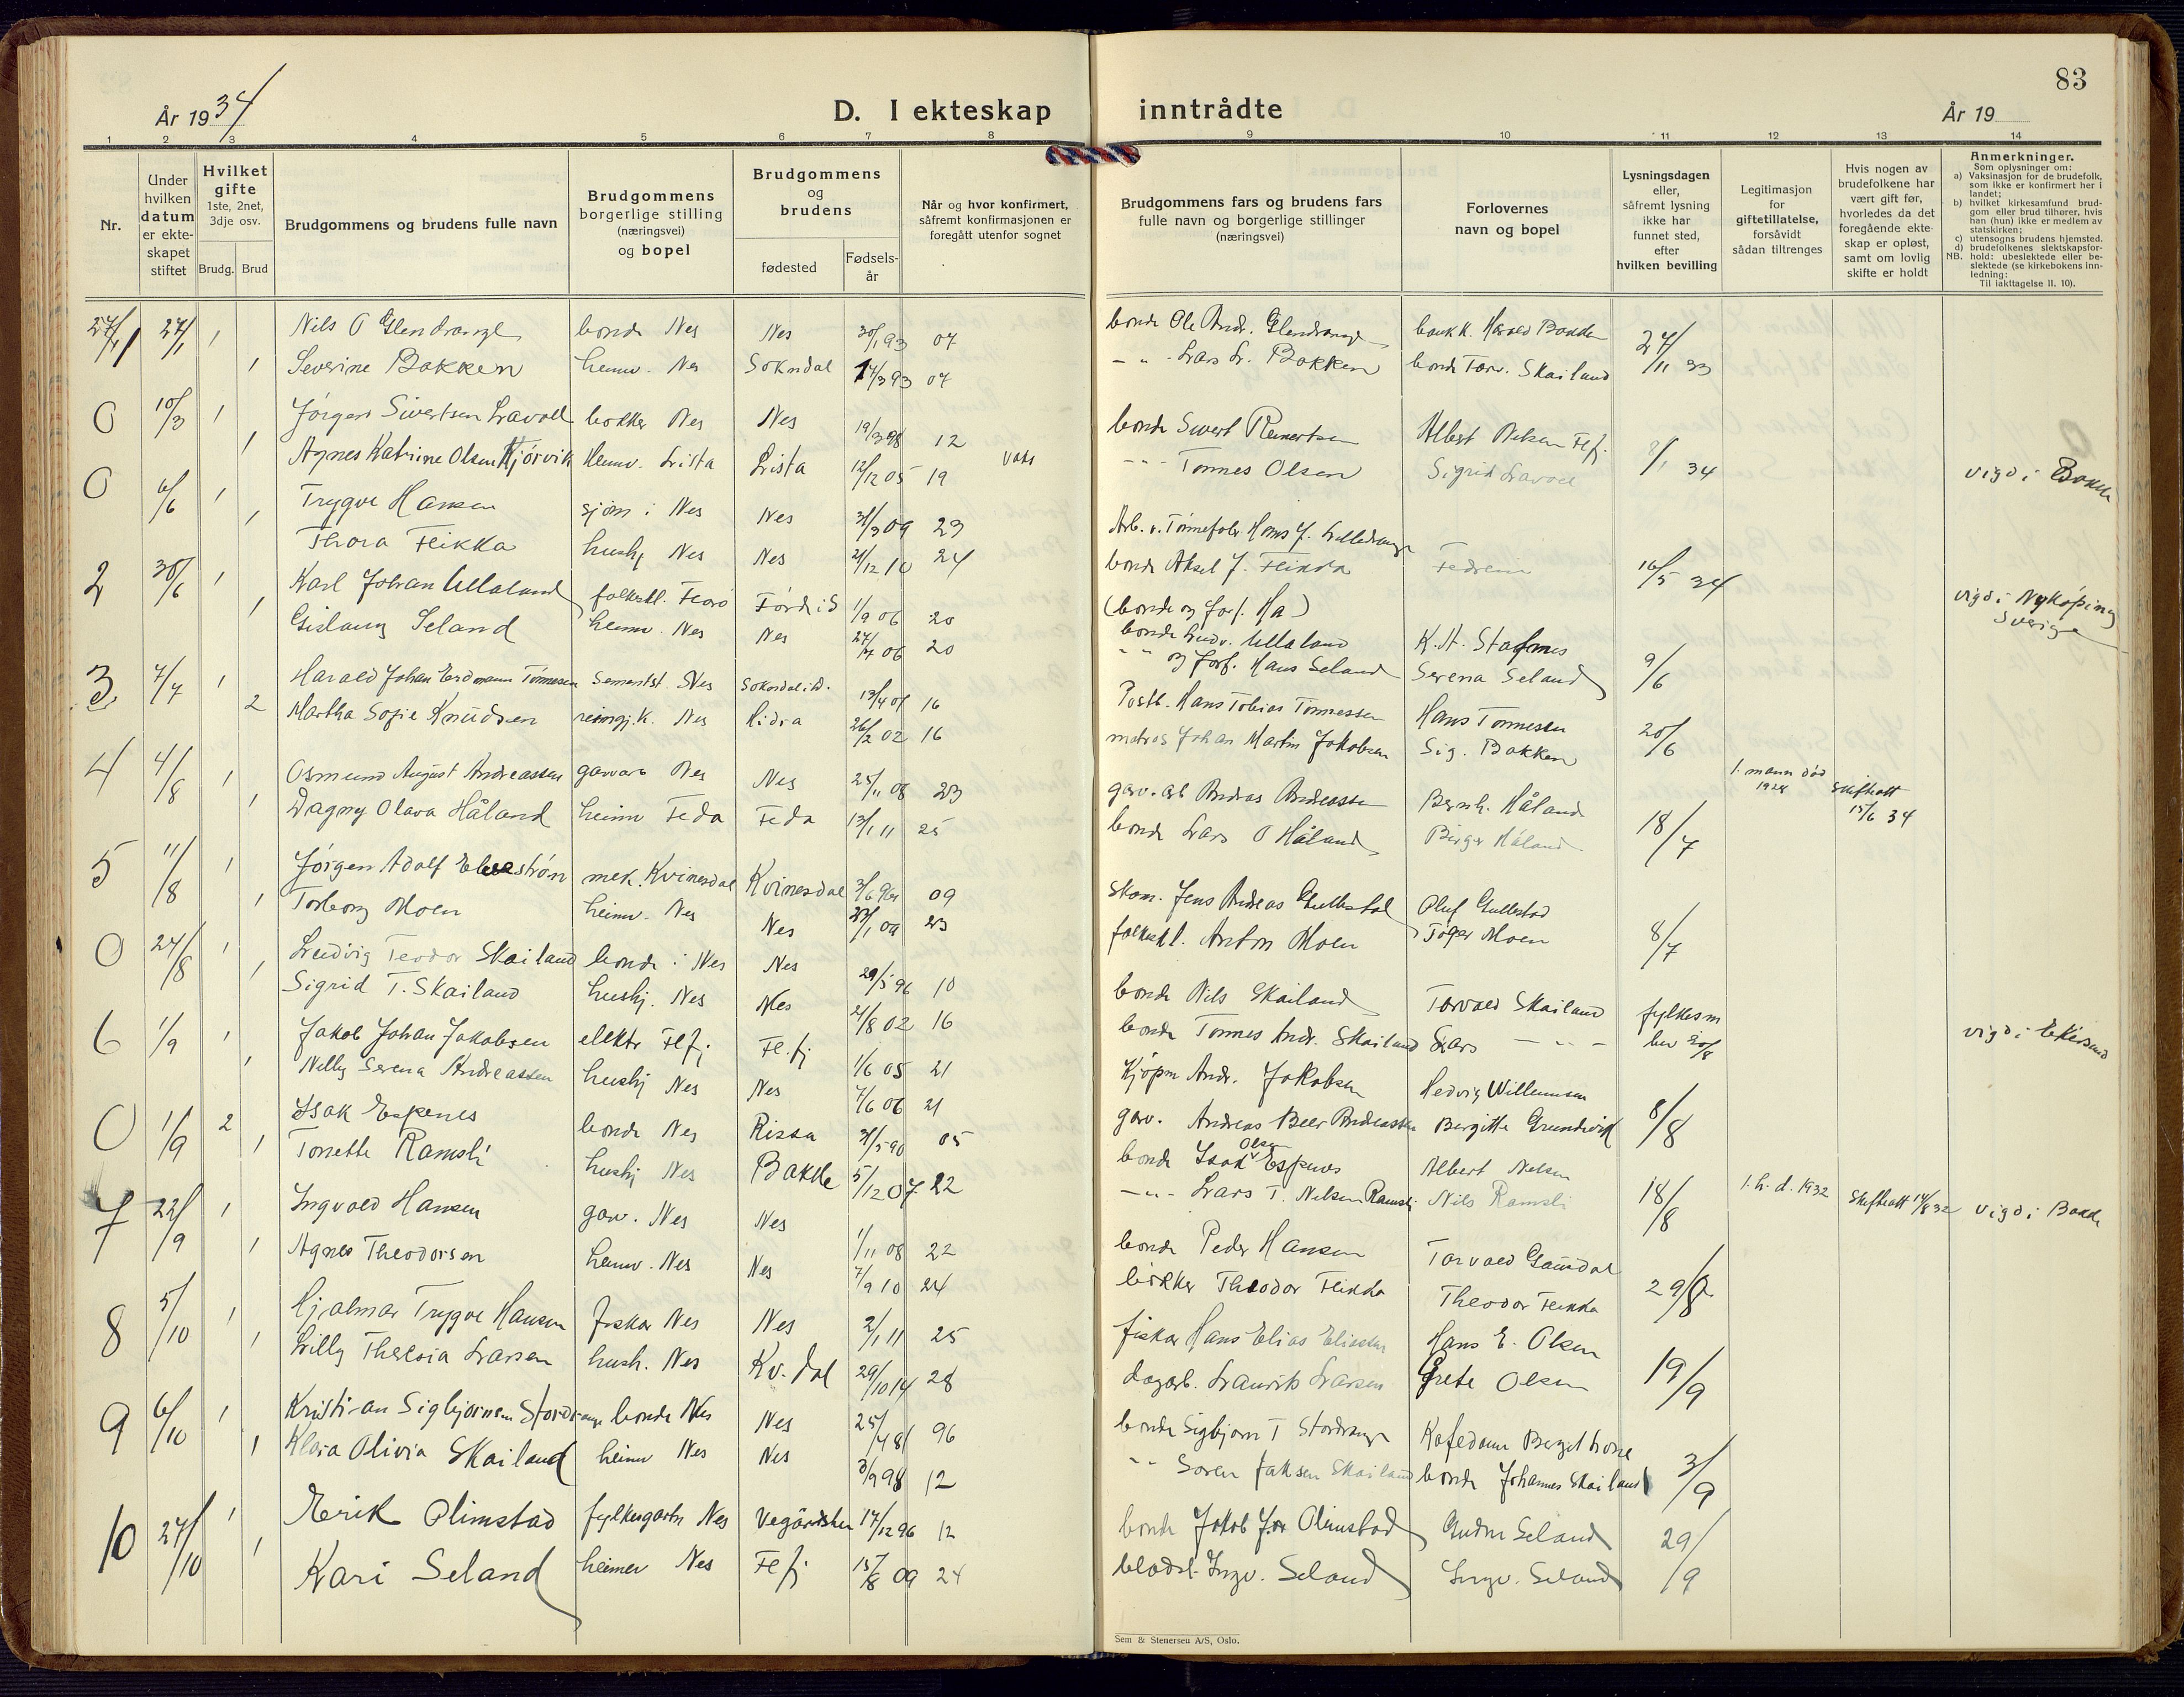 83
År 1934
D. I ekteskap inntrådte
År 19
1 2 3 4 5 6 7 8 9 10 11 12 13 14
Nr.
Under hvilken datum er ekteskapet stiftet
Hvilket gifte 1ste, 2net, 3dje osv.
Brudg. Brud
Brudgommens og brudens fulle navn
Brudgommens borgerlige stilling (næringsvei) og bopel
Brudgommens og brudens
fødested
Fødselsår
Når og hvor konfirmert, såfremt konfirmasjonen er foregått utenfor sognet
Brudgommens fars og brudens fars fulle navn og borgerlige stillinger (næringsvei)
Forlovernes navn og bopel
Lysningsdagen eller, såfremt lysning ikke har funnet sted, efter hvilken bevilling
Legitimasjon for giftetillatelse, forsåvidt sådan tiltrenges
Hvis nogen av brudefolkene har vært gift før, hvorledes da det foregående ekteskap er opløst, samt om lovlig skifte er holdt
Anmerkninger.
Som oplysninger om:
a) Vaksinasjon for de brudefolk, som ikke er konfirmert her i landet;
b) hvilket kirkesamfund brudgom eller brud tilhører, hvis han (hun) ikke er medlem av statskirken;
c) utensogns brudens hjemsted.
d) brudefolkenes slektskapsforhold: ubeslektede eller beslektede (se kirkebokens innledning:
NB.
Til iakttagelse II. 10).
27/1 1 Nils O Glendrange bonde Nes Nes 30/1 93 07 bonde Ole Andr. Glendrange Harald Bakken 27/11 33
1 Severine Bakken heimv. Nes Sokndal 17/3 93 07 - " - Lars L. Bakken bonde Torv. Skailand
0 10/3 1 Jørgen Sivertsen Lavoll bøkker Nes Nes 19/3 98 12 bonde Sivert Reinertsen Albert Nelsen Flfj. 8/1 34
1 Agnes Katrine Olsen Kjørvik heimv. Lista Lista 12/12 05 19 - " - Tønnes Olsen Sigrid Lavoll vigd i Bakke
0 6/6 1 Trygve Hansen sjøm i Nes Nes 31/3 09 23
1 Thora Fleikka hushj Nes Nes 21/12 10 24 bonde Aksel J. Fleikka 16/5 34 vigd i Nykøping Sverige
2 30/6 1 Karl Johan Ullaland Førd i S 1/9 06 20 (bonde og forf. Ha)
bonde Ullaland K. H. Stafsnes 9/6
1 Gislaug Seland heimv. Nes Nes 27/7 06 20 - " og forf. Hans Seland Serena Seland
3 7/7 1 Harald Johan Erdmann Tønnesen Sementst. Nes Sokndal i D. 13/4 01 16 Postb. Hans Tobias Tønnessen Hans Tønnesen 20/6
2 Martha Sofie Knudsen reingj.k. Nes Hidra 26/2 02 16 matros Johan Martin Jakobsen Sig. Bakken 1. mann død 1928 Skifteatt 15/6 34
4 4/8 1 Osmund August Andreassen garvarb Nes Nes 25/11 08 23 garv. arb Andreas Andreassen Bernh. Håland 18/7
1 Dagny Olava Håland heimv Feda Feda 13/1 11 25 bonde Lars O Håland Birger Håland
5 11/8 1 Jørgen Adolf mek. Kvinesdal Kvinesdal 09 Skom. Jens Andreas Gullestad Oluf Gullestad 8/7
1 Torborg Moen heimv. Nes Nes 23 Anton Moen Moen
0 24/8 1 Ludvig Teodor Skailand bonde i Nes Nes 29/5 96 10 bonde Nils Skailand Torvald Skailand fylkesm bev 20/8
1 Sigrid T. Skailand hushj. Nes Nes 21/8 02 16 bonde Tønnes Andr. Skailand Lars - " - vigd i Ekersund
6 1/9 1 Jakob Johan Jakobsen elektr Flfj Fl.fj 1/6 05 21 Kjøpm Andr. Jakobsen Hedvig Willumsen 8/8
1 Nelly Serena Andreassen hushj Nes Nes 7/6 06 21 garv. Andreas Beer Andreassen Bergitte Grundvik
0 1/9 2 Isak Espenes bonde Nes Rissa 31/5 90 05 bonde Isak Olsen Espenes Albert Nelsen 18/8 1. h. d. 1932 Skifteatt 14/8 32 vigd i Bakke
1 Tonette Ramsli hushj Nes Bakke 5/12 07 22 - " - Lars T. Nelsen Ramsli Nils Ramsli
7 22/9 1 Ingvald Hansen garv. Nes Nes 1/11 08 22 bonde Peder Hansen Torvald Gausdal 29/8
1 Agnes Theodorsen heimv. Nes Nes 7/9 10 24 bøkker Theodor Fleikka Theodor Fleikka
8 5/10 1 Hjalmar Trygve Hansen fiskar Nes Nes 2/1 11 25 fiskar Hans Elias Eliassen Hans E. Olsen 19/9
1 Lilly Theresia Larsen hush. Nes Kv. dal 29/10 14 28 dagarb. Laurits Larsen Grete Olsen
9 6/10 1 Kristian Sigbjørnsen Stordrange bonde Nes Nes 25/4 81 96 bonde Sigbjørn T Stordrange 3/9
1 Klara Olivia Skailand heimv Nes Nes 3/9 98 12 - " - Søren Jaksen Skailand bonde Johannes Skailand
10 27/10 1 Erik Olimstad fylkesgartn Nes Vegårdshei 17/12 96 12 bonde Jakob Olimstad Gudrun Seland 29/9
1 Kari Seland heimev Nes Flfj 15/8 09 24 Ingv. Seland Ingv. Seland
Sem & Stenersen A/S, Oslo.